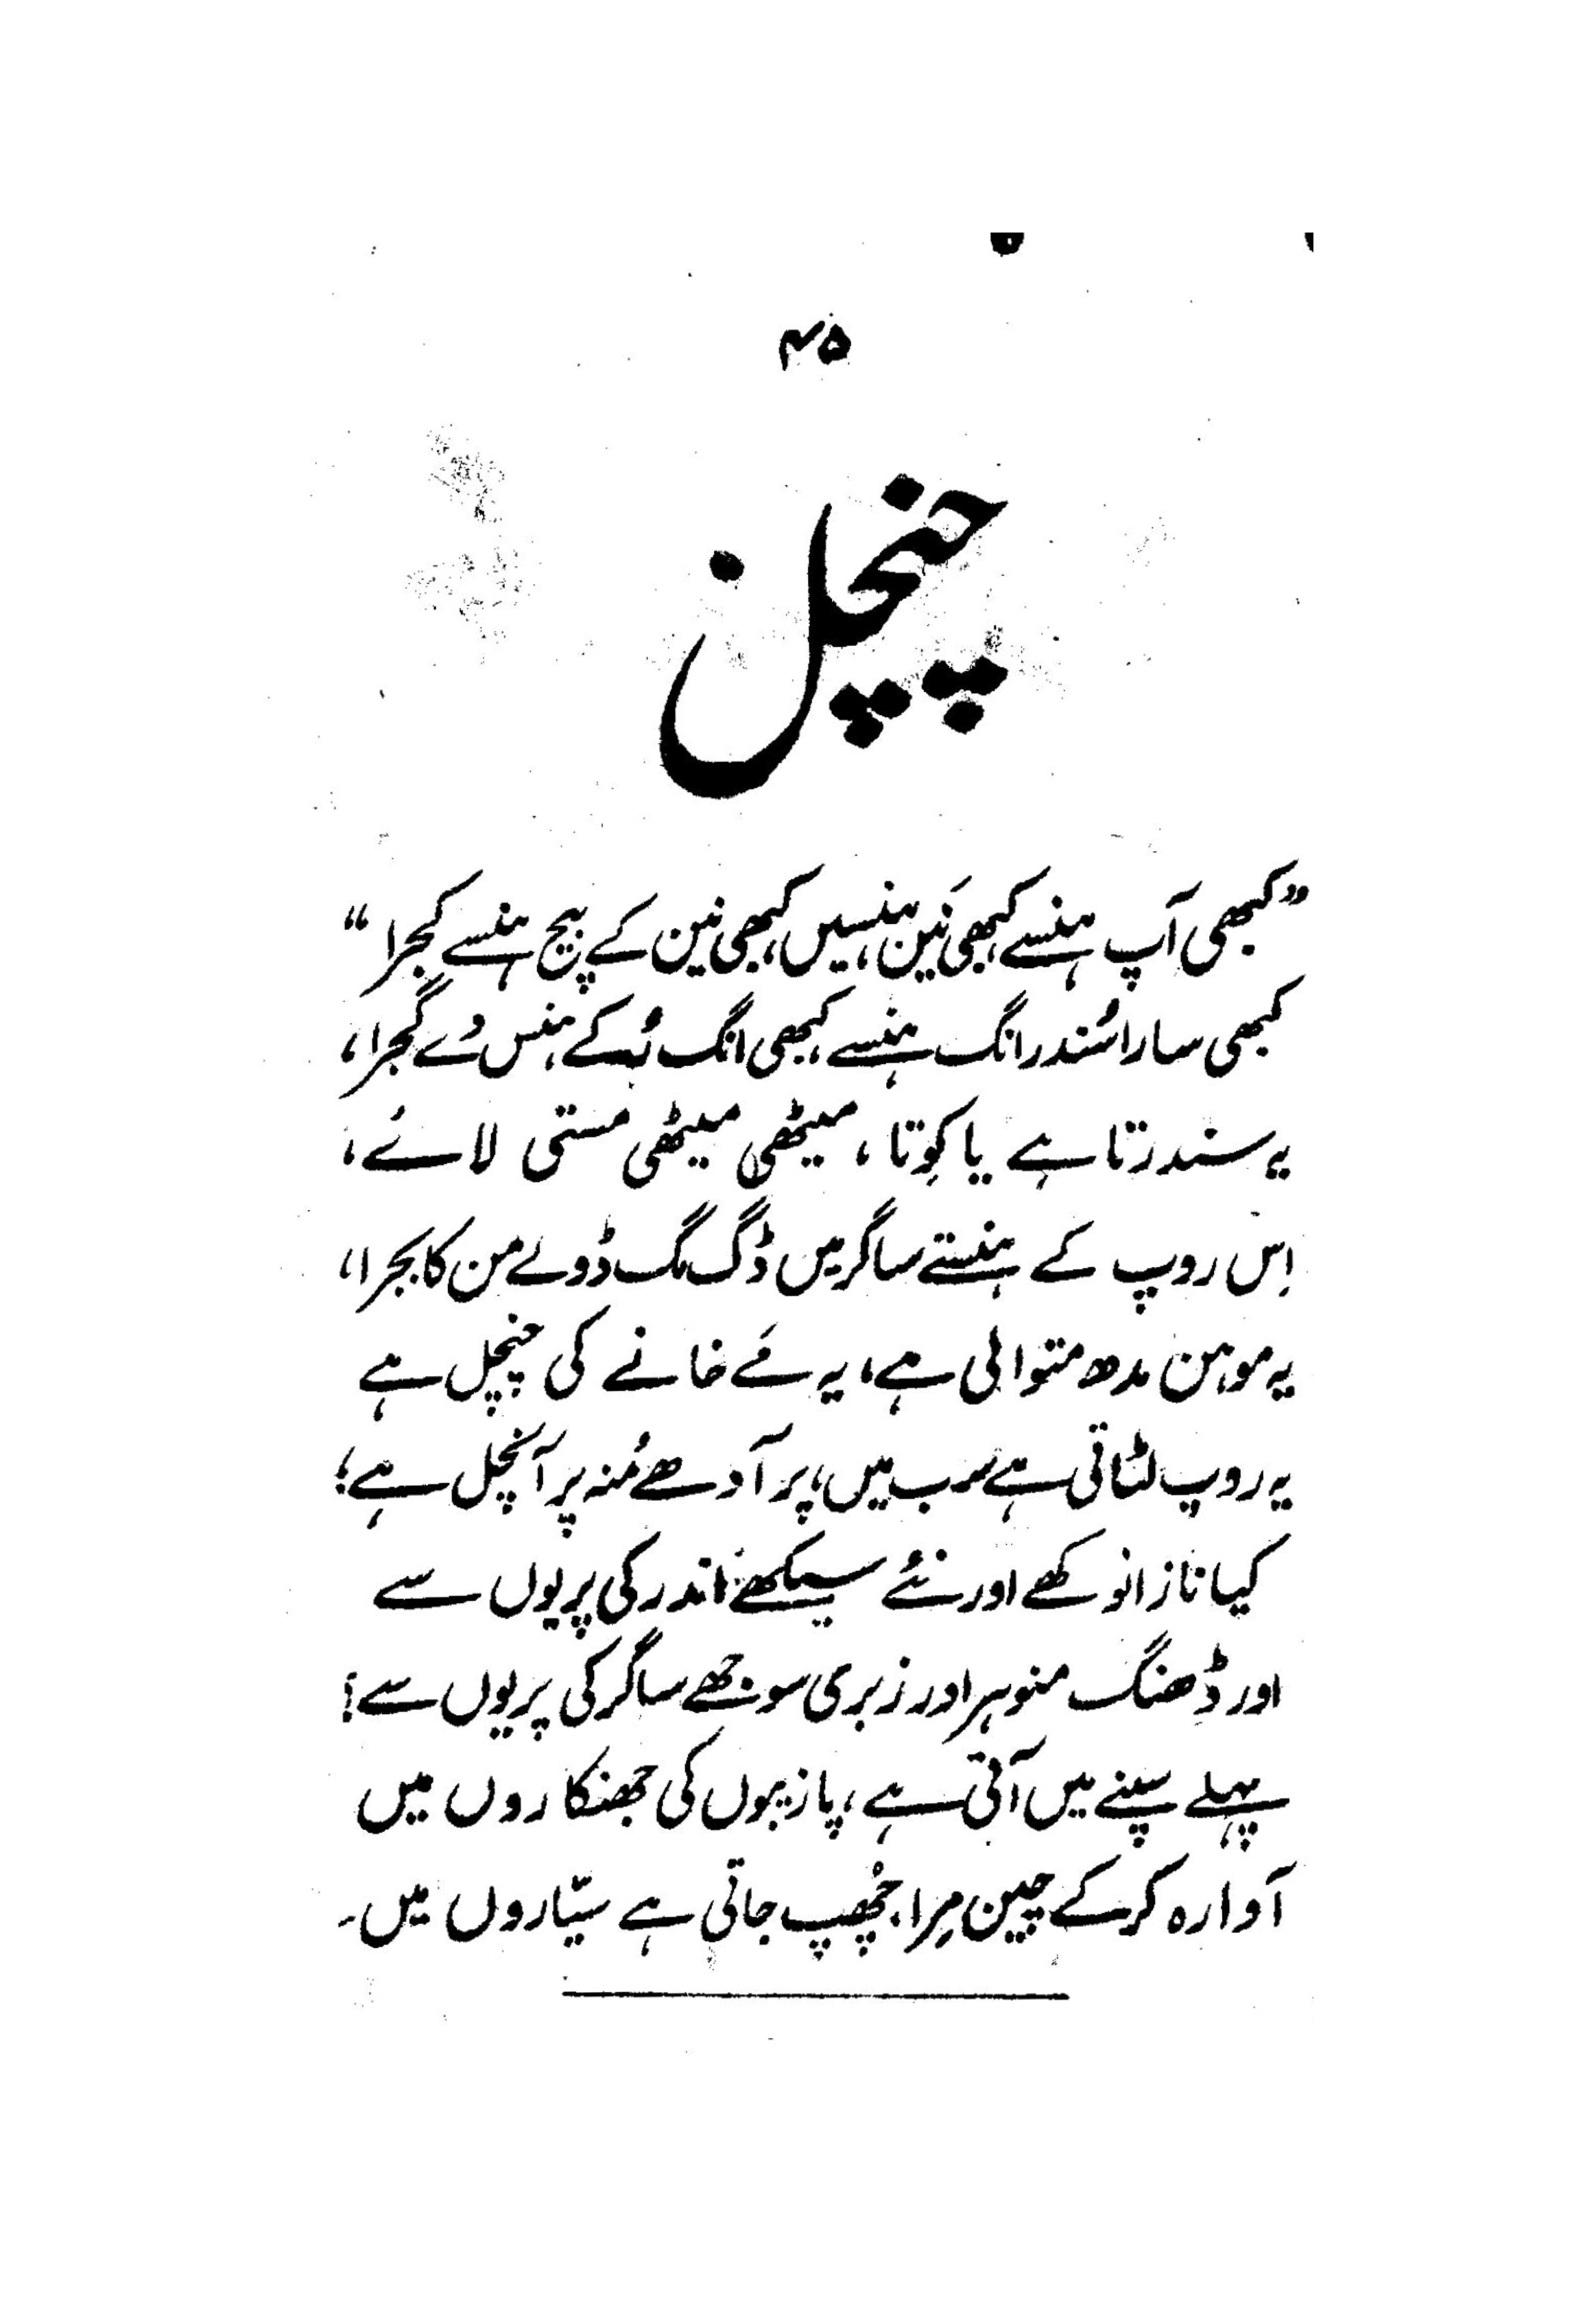 ۴۵
چنچل
”کبھی آپ ہنسے، کبھی نَین ہنسیں، کبھی نین کے بیچ ہنسے کجرا“
کبھی سارا سُندر انگ ہنسے، کبھی انگ رُکے، ہنس دے گجرا،
یہ سندرتا ہے یا کوِتا، میٹھی میٹھی مستی لائے،
اِس روپ کے ہنستے ساگر میں ڈگ مگ ڈولے من کا بجرا،
یہ موہن مدھ متوالی ہے، یہ مَے خانے کی چنچل ہے
یہ روپ لٹاتی ہے سب میں، پر آدھے مُنہ پر آنچل ہے؛
کیا ناز انوکھے اور نئے سیکھے اندر کی پریوں سے
اور ڈھنگ منوہر اور زہری سوجھے ساگر کی پریوں سے؛
پہلے سپنے میں آتی ہے، پازیبوں کی جھنکاروں میں
آوارہ کر کے چین مِرا، چُھپ جاتی ہے سیّاروں میں۔